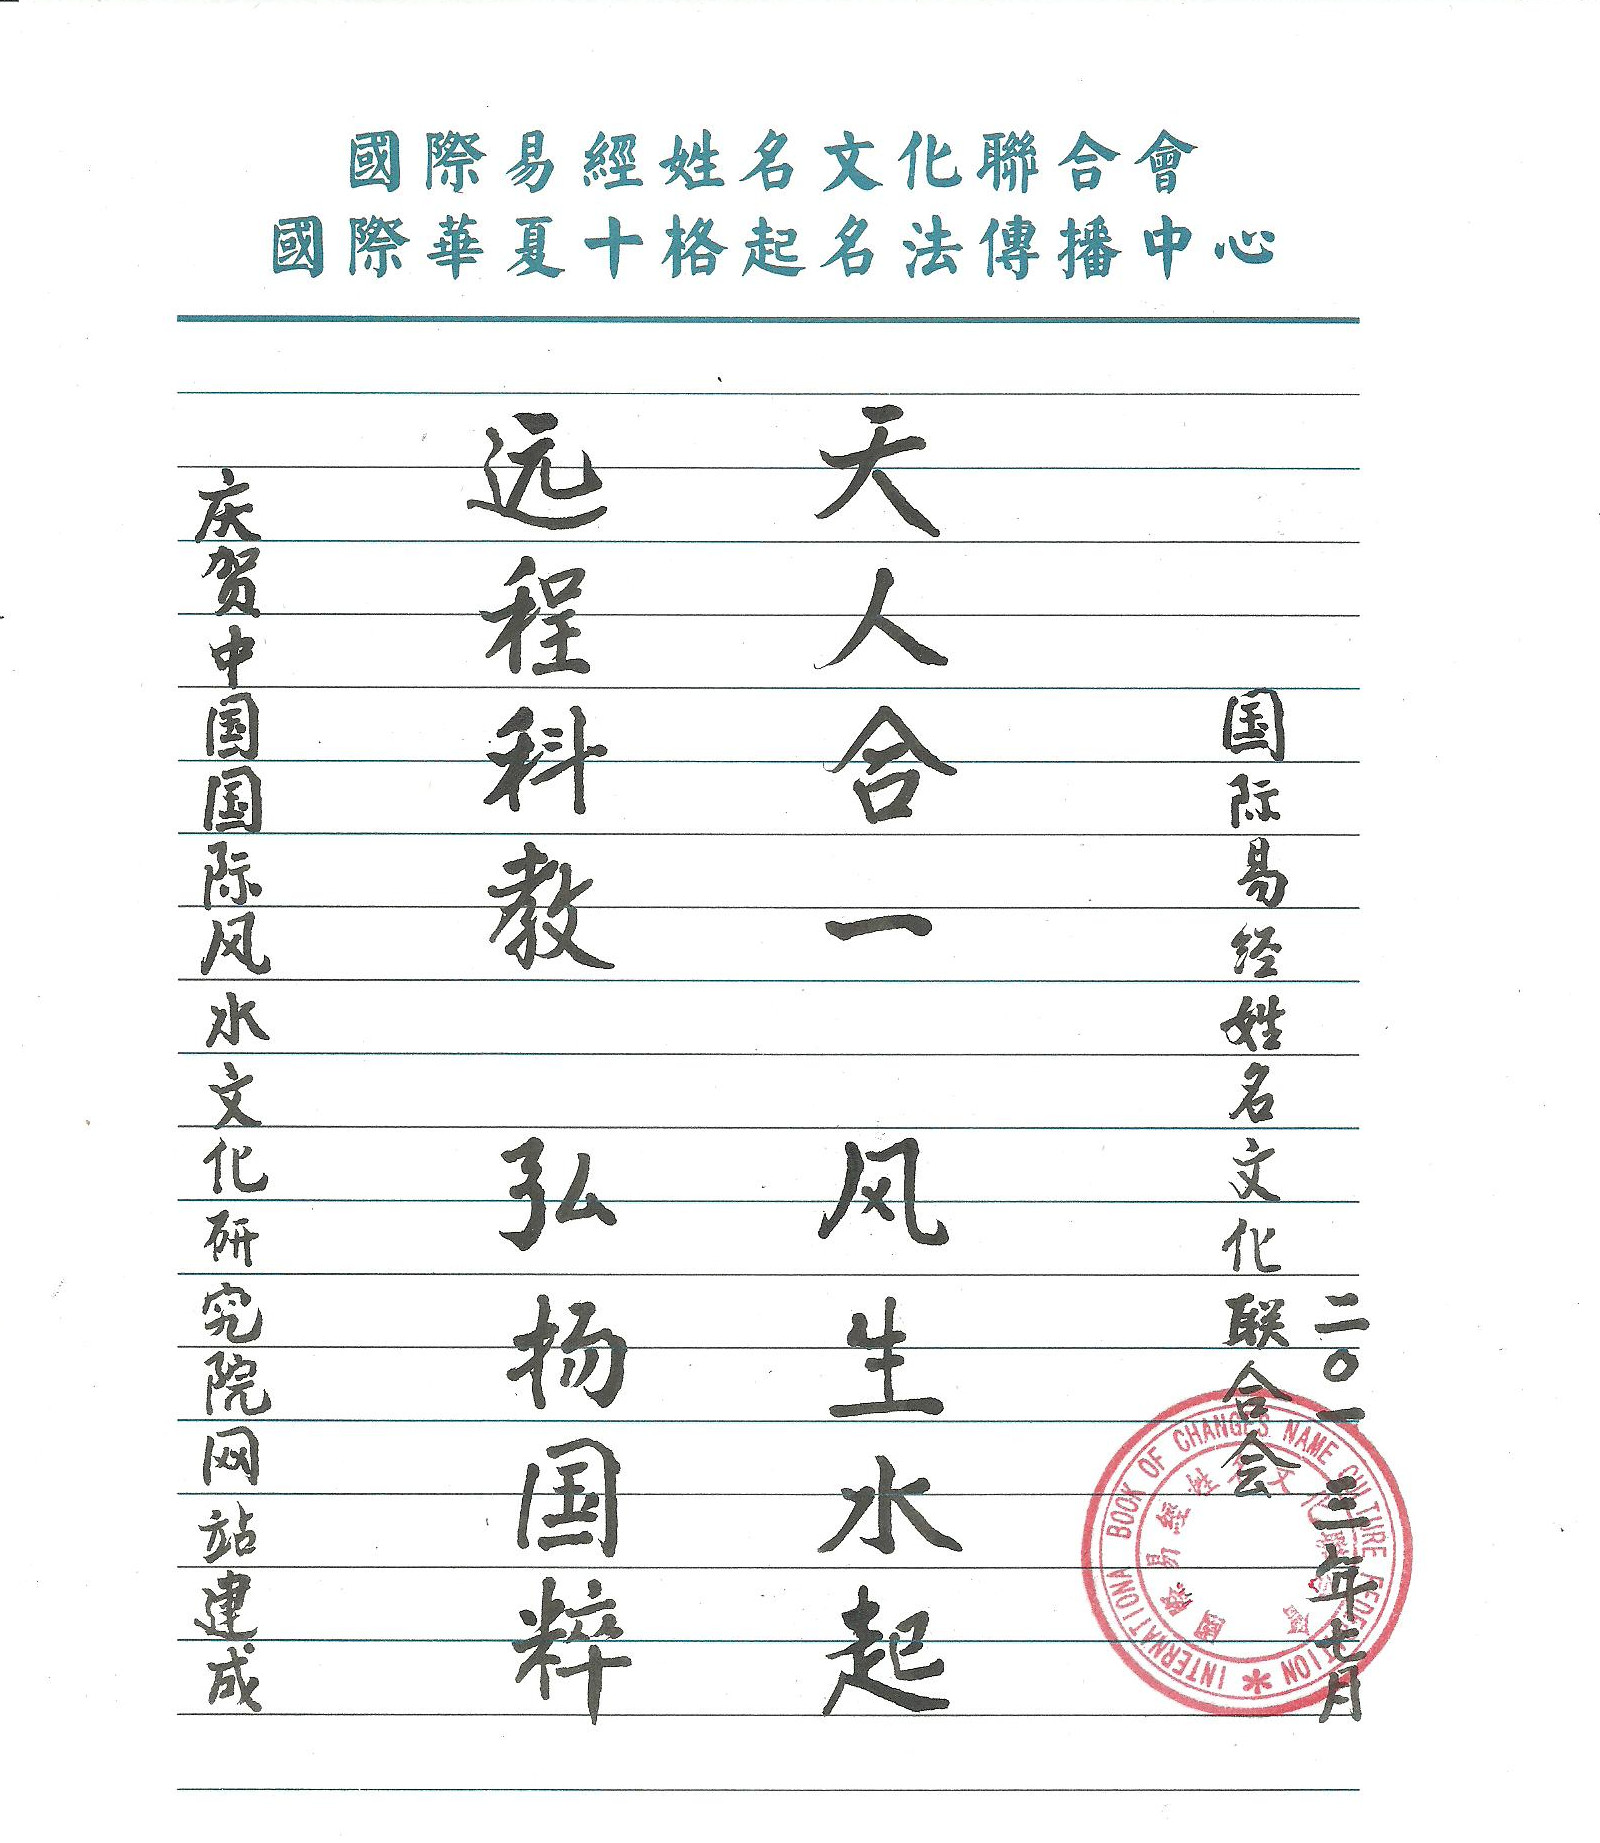 國際易經姓名文化聯合會
國際華夏十格起名法傳播中心
庆贺中国国际风水文化研究院网站建成
远程科教 弘扬国粹
天人合一 风生水起
国际易经姓名文化联合会
二〇一三年七月
INTERNATIONA BOOK OF CHANGES NAME CULTURE FEDERATION
國際易經姓名文化聯合會